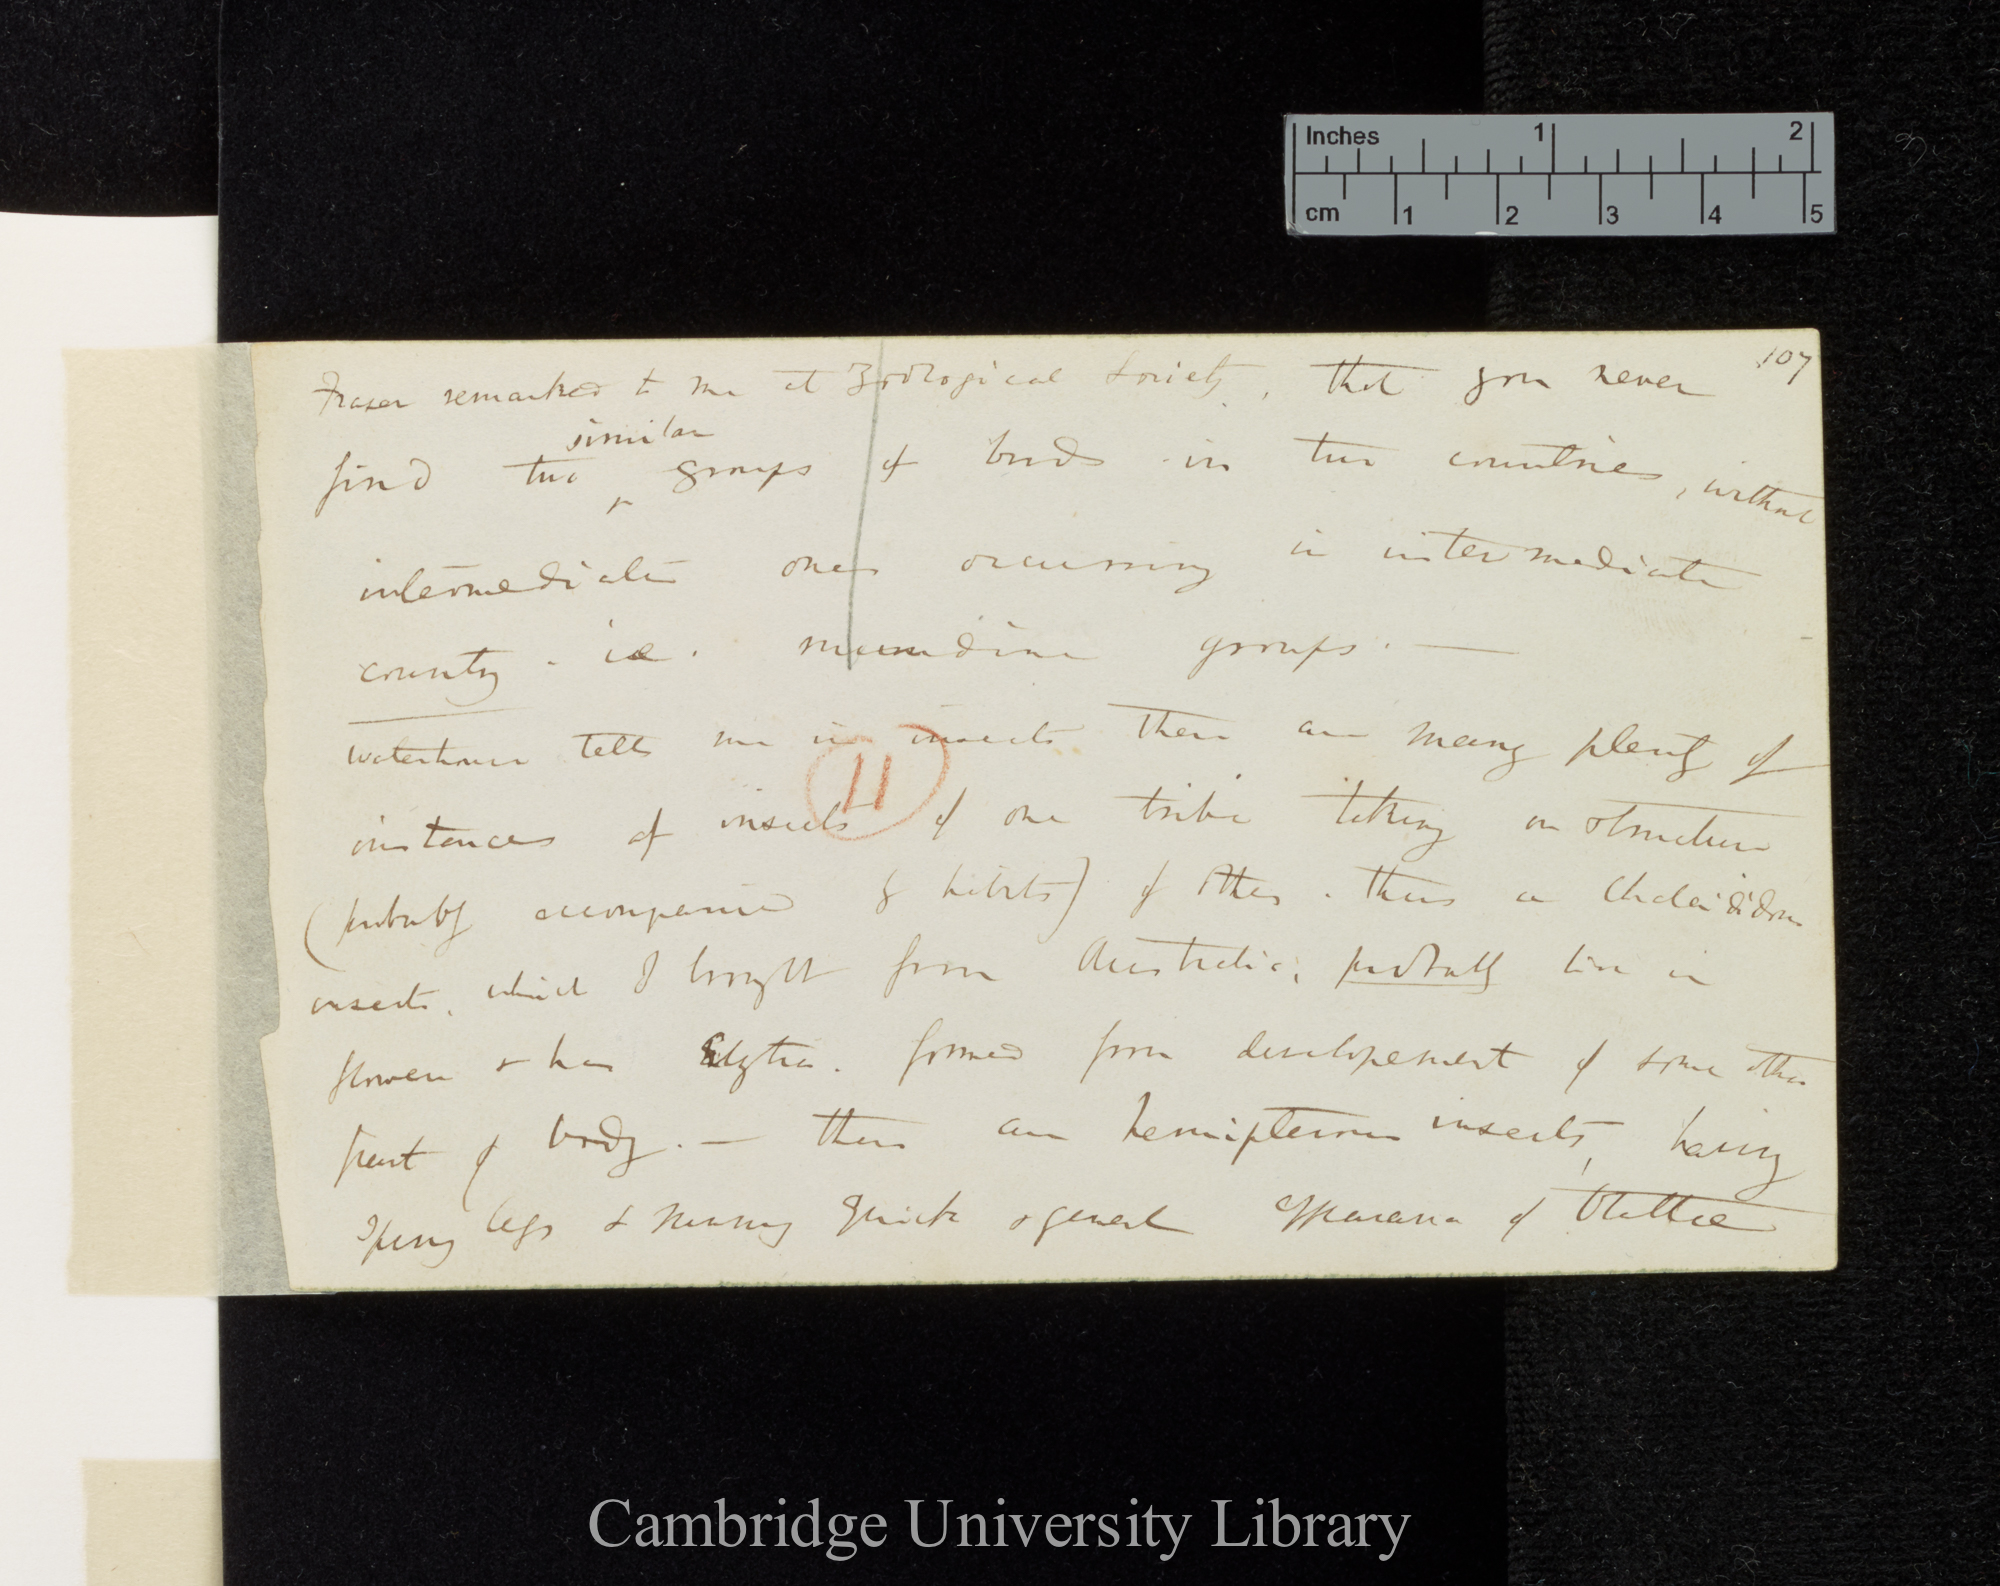 Inches 1 2
cm 1 2 3 4 5
107
Fraser remarked to me at Zoological Society, that you never
similar
find two groups of birds in two countries, without
intermediate ones occurring in intermediate
country. i.e. mundine groups. —
Waterhouse tells me in insects there are many plenty of
11
instances of insects of one tribe taking on structure
(probably accompanied by habits) of other. thus a
insects, which I brought from Australia, probably live in
flowers & has Elytra. formed from developement of some other
part of body. — there are hemipterous insects, having
spiny legs & running quick & general appearance of Blattae
Cambridge University Library